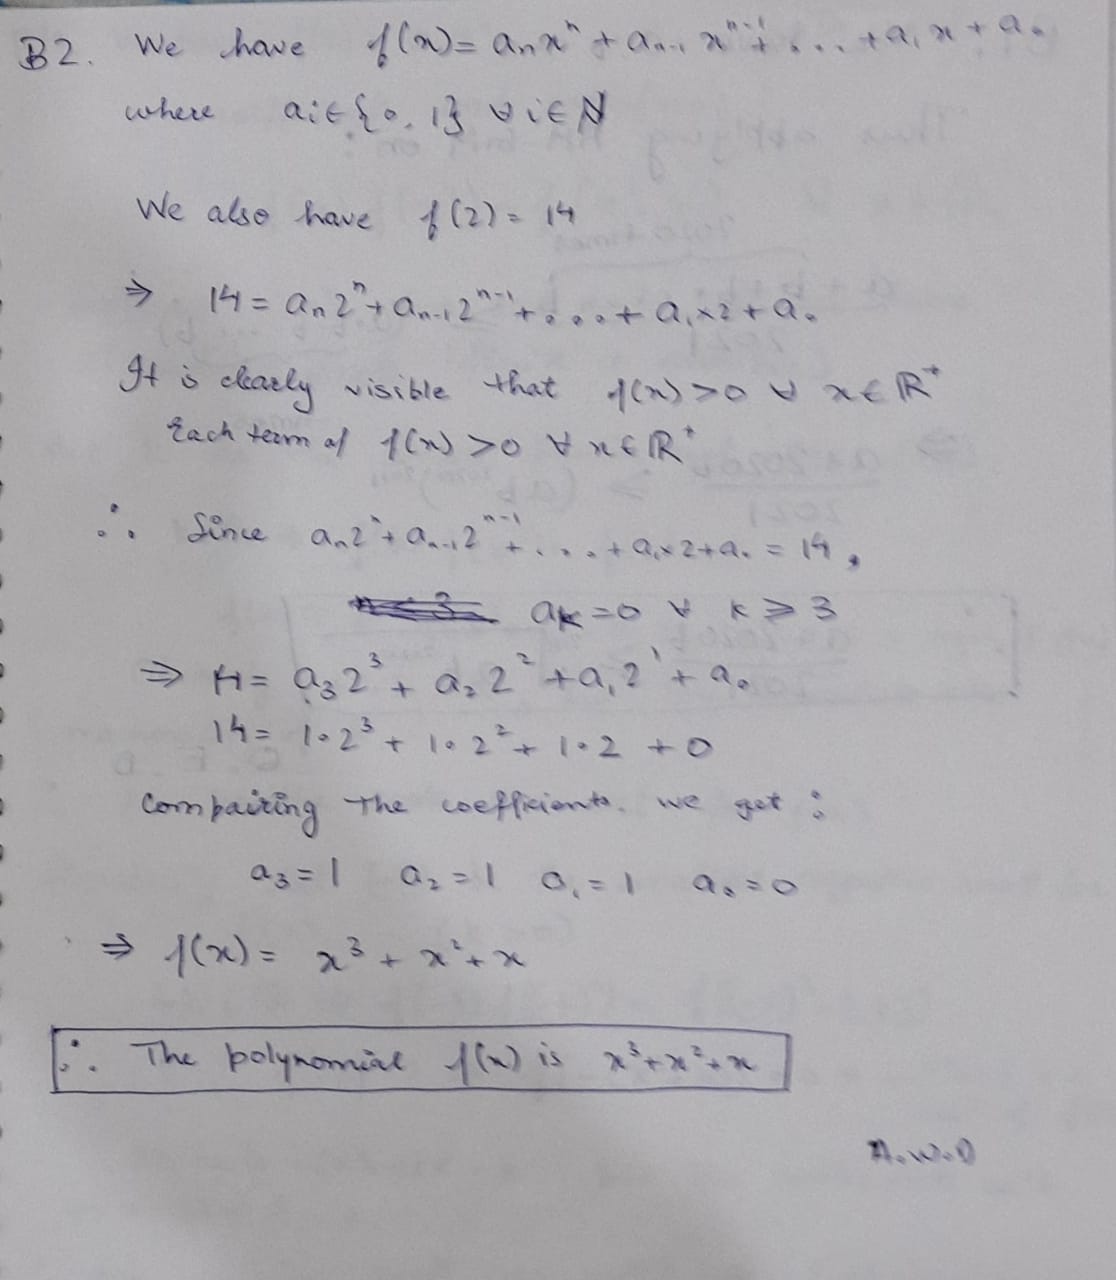 B2. We have f(x) = aₙxⁿ + aₙ₋₁ xⁿ⁻¹ + ... + a₁x + a₀
where ai ∈ {0, 1} ∀ i ∈ N
We also have f(2) = 14
⇒ 14 = aₙ2ⁿ + aₙ₋₁2ⁿ⁻¹ + ... + a₁×2 + a₀
It is clearly visible that f(x) > 0 ∀ x ∈ R⁺
Each term of f(x) > 0 ∀ x ∈ R⁺
∴ Since aₙ2ⁿ + aₙ₋₁2ⁿ⁻¹ + ... + a₁×2 + a₀ = 14,
aₖ = 0 ∀ k ⩾ 3
⇒ 14 = a₃2³ + a₂2² + a₁2¹ + a₀
14 = 1·2³ + 1·2² + 1·2 + 0
Compairing the coefficients. we get :
a₃ = 1 a₂ = 1 a₁ = 1 a₀ = 0
⇒ f(x) = x³ + x² + x
∴ The polynomial f(x) is x³ + x² + x
A.W.D